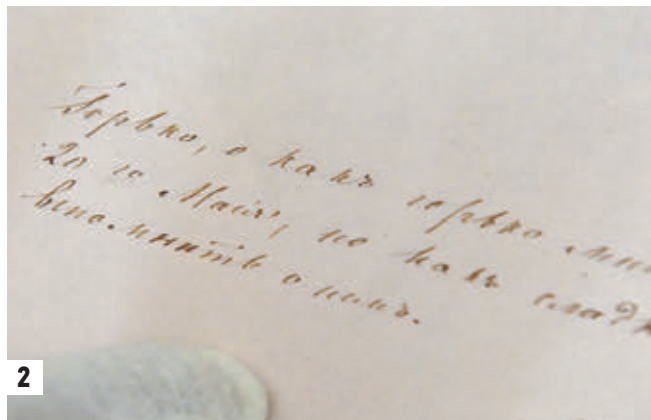 Горько, о какъ горько мн
20 го Мая, но какъ сладк
вспомнить о немъ.
2